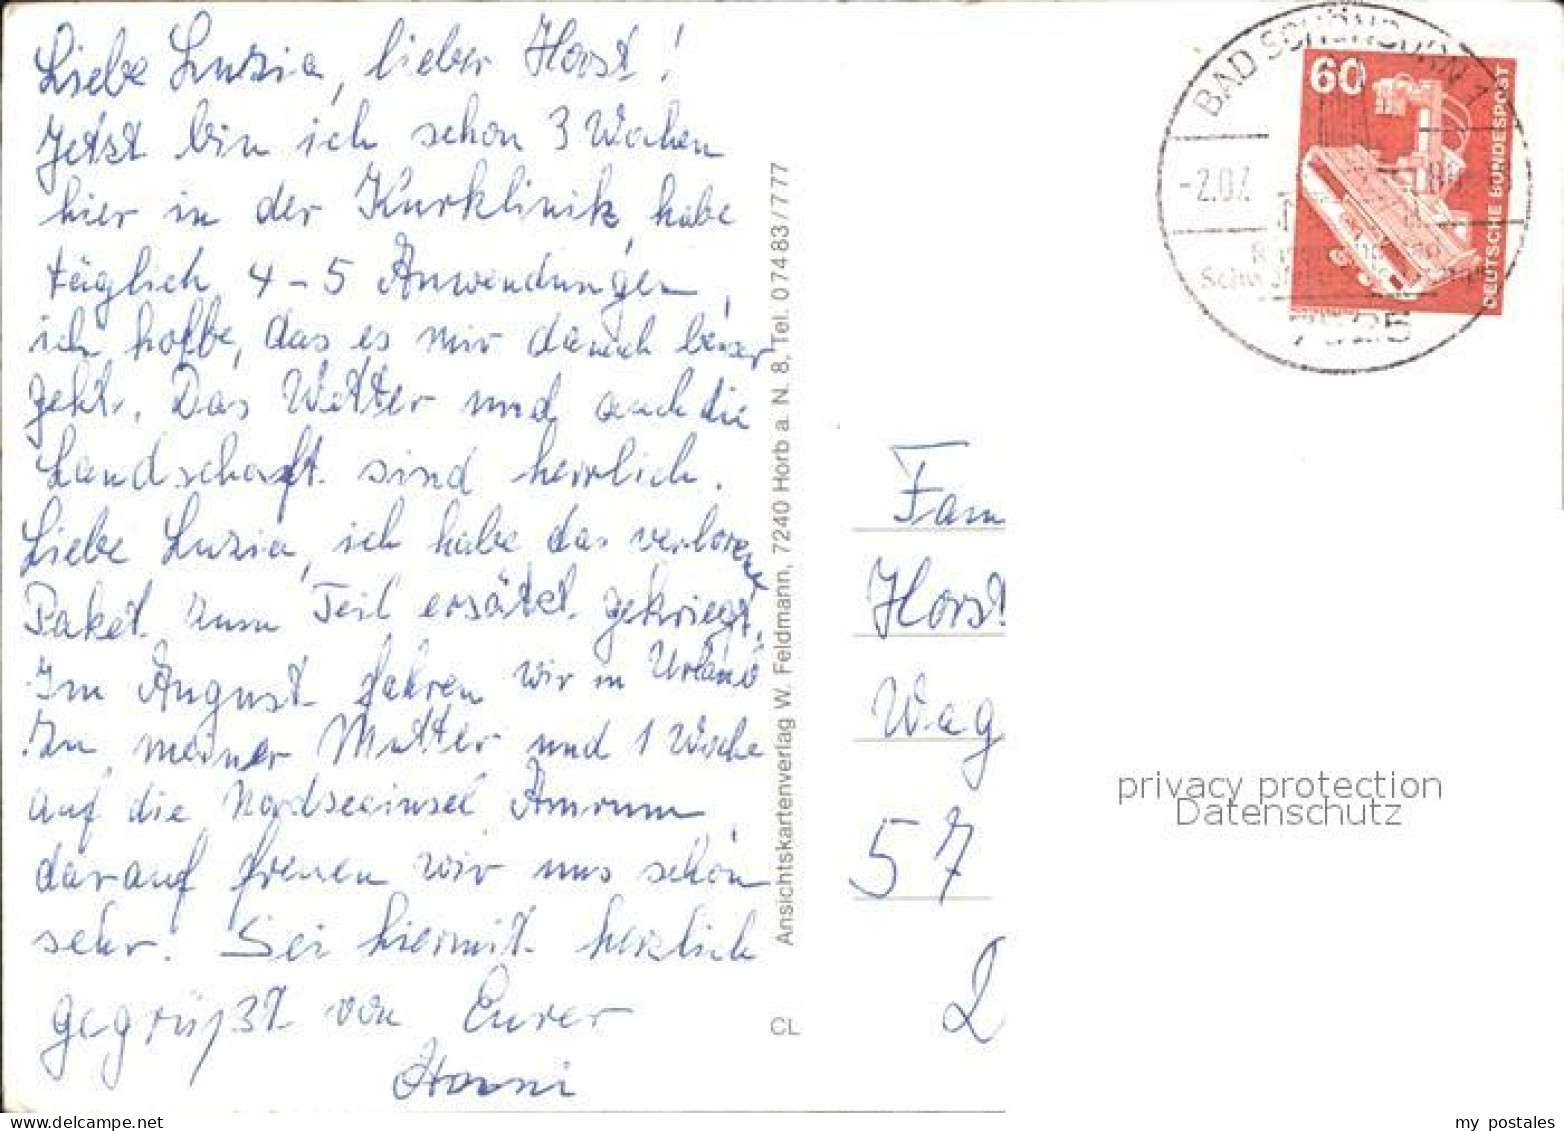 Liebe Luzia, lieber Horst!
Jetzt bin ich schon 3 Wochen
hier in der Kurklinik, habe
täglich 4-5 Anwendungen,
ich hoffe, das es mir danach besser
geht. Das Wetter und auch die
Landschaft sind herrlich.
Liebe Luzia, ich habe das verlorene
Paket zum Teil ersätzt gekriegt.
Im August fahren wir in Urlaub
Zu meiner Mutter und 1 Woche
auf die Nordseeinsel Amrum,
darauf freuen wir uns schon
sehr. Sei hiermit herzlich
gegrüßt von Eurer
Hanni
Ansichtskartenverlag W. Feldmann, 7240 Horb a. N. 8, Tel. 07483/777
CL
BAD SCHÖNBORN 1
-2.07.
60
DEUTSCHE BUNDESPOST
Fam
Horst
Wag
57
privacy protection
Datenschutz
my postales